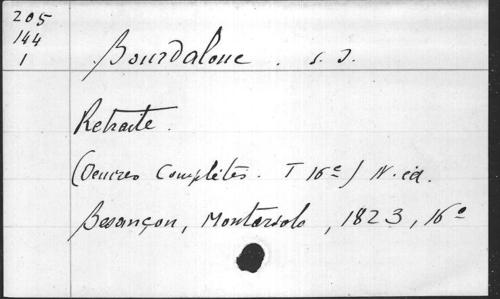 205
144
1
Bourdaloue . S. J.
Retraite.
(Oeuvres Complètes. T 16e) N. éd.
Besançon, Montarsolo, 1823, 16°